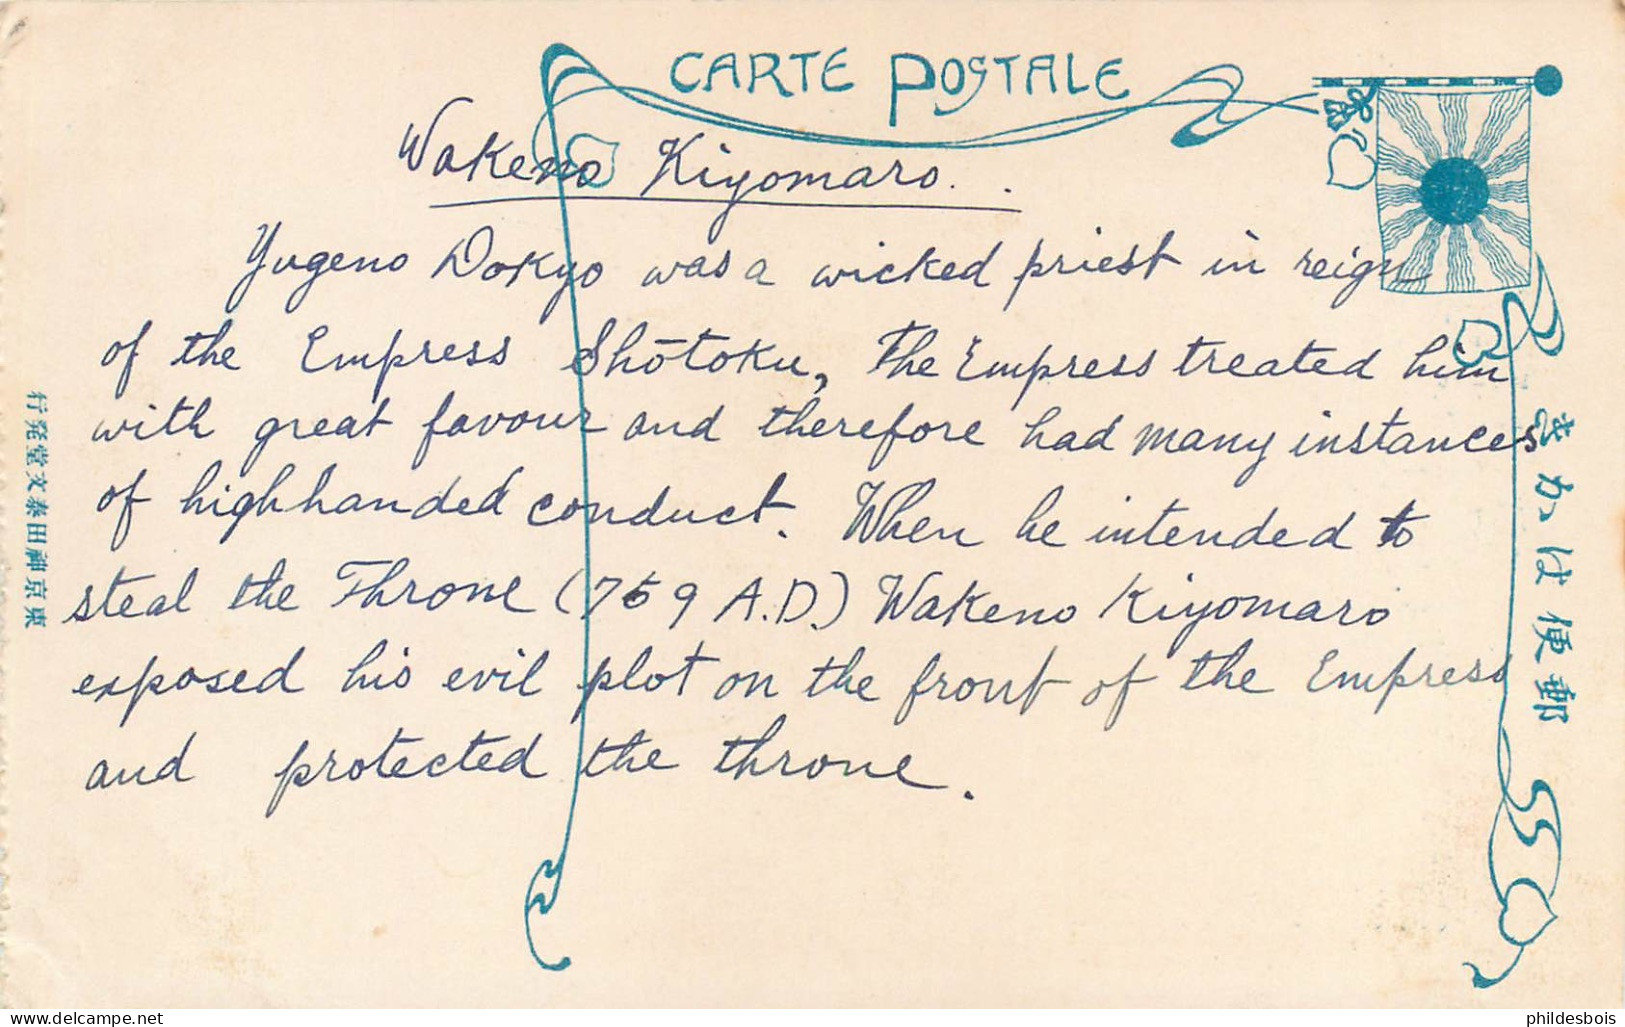 CARTE POSTALE
Wakeno Kiyomaro. .
Yugeno Dokyo was a wicked priest in reign
of the Empress Shōtoku, The Empress treated him
with great favour and therefore had many instances
of highhanded conduct. When he intended to
steal the Throne (769 A.D.) Wakeno Kiyomaro
exposed his evil plot on the front of the Empress
and protected the throne.
きかは便郵
行発堂文泰田神京東
phildesbois